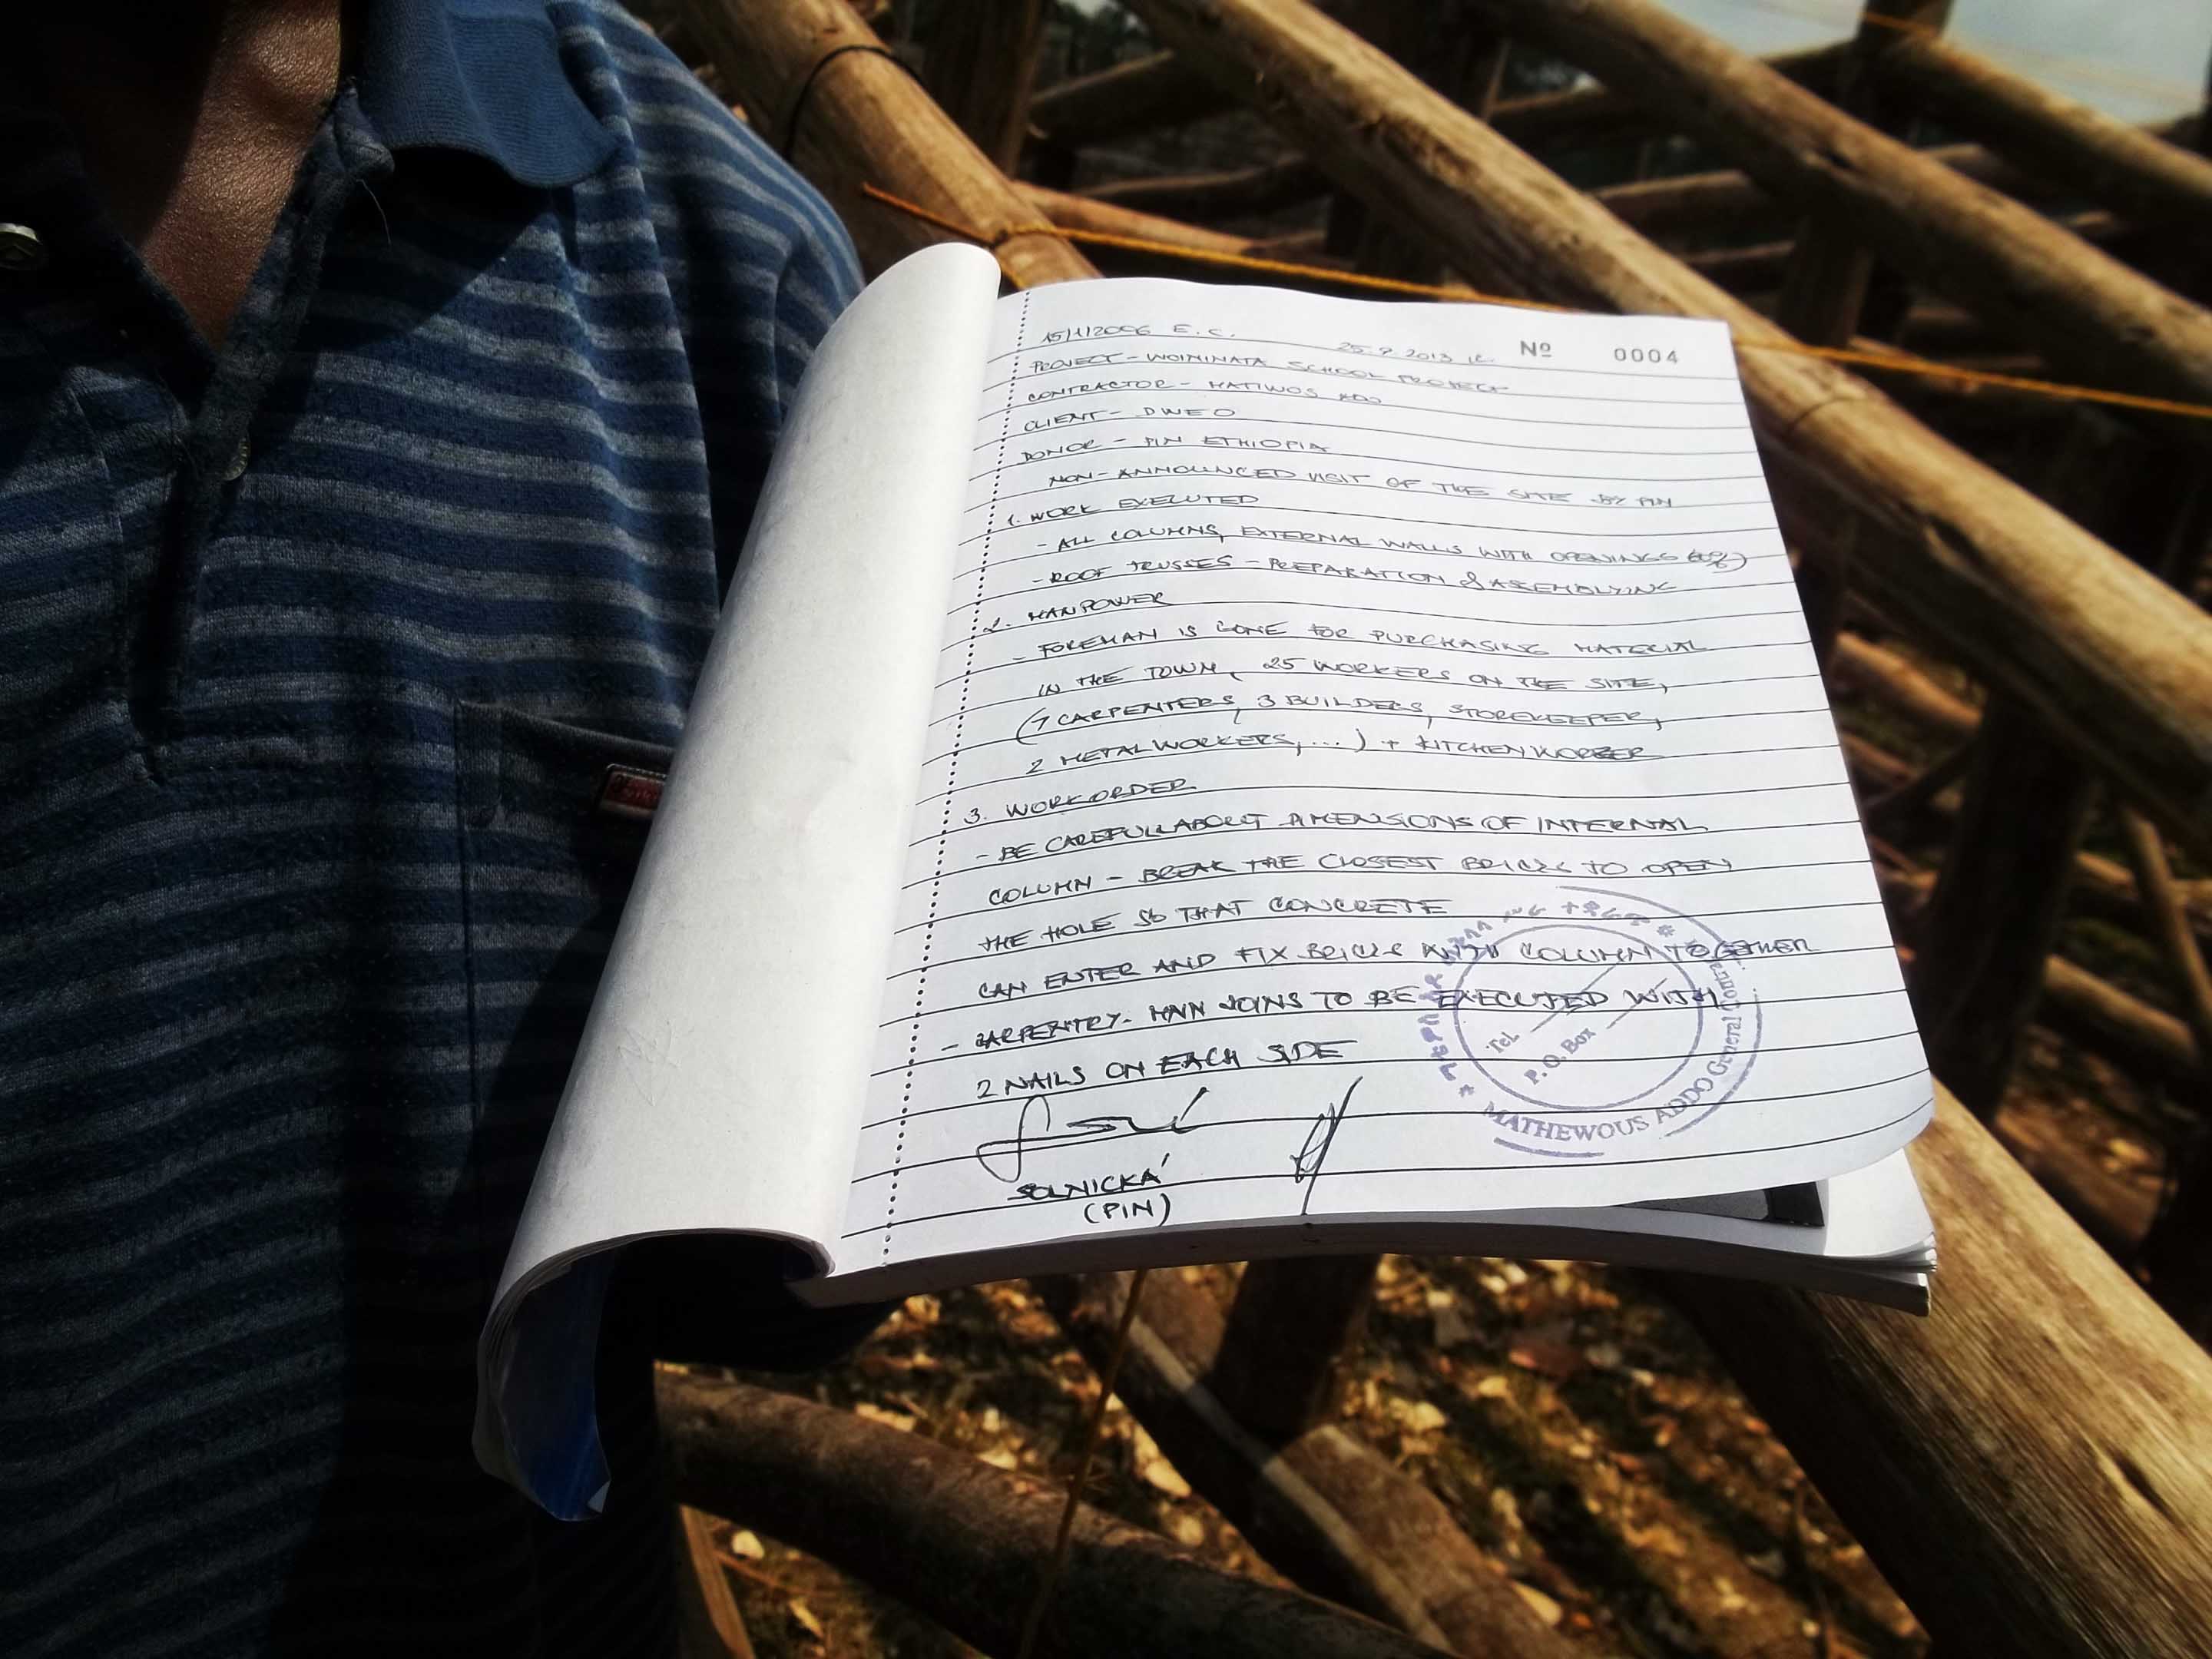 15/1/2006 E.C. 25.9.2013 Nº 0004
PROJECT - WOIMINATA SCHOOL PROJECT
CONTRACTOR - MATIWOS ADO
CLIENT - DWEO
DONOR - PIN ETHIOPIA
NON-ANNOUNCED VISIT OF THE SITE BY PIN
1. WORK EXECUTED
- ALL COLUMNS, EXTERNAL WALLS WITH OPENINGS (60%)
- ROOF TRUSSES - PREPARATION & ASSEMBLYING
2. MANPOWER
- FOREMAN IS GONE FOR PURCHASING MATERIAL
IN THE TOWN, 25 WORKERS ON THE SITE,
(7 CARPENTERS, 3 BUILDERS, STOREKEEPER,
2 METALWORKERS, ...) + KITCHENWORKER
3. WORKORDER
- BE CAREFULL ABOUT DIMENSIONS OF INTERNAL
COLUMN - BREAK THE CLOSEST BRICKS TO OPEN
THE HOLE SO THAT CONCRETE
CAN ENTER AND FIX BRICKS WITH COLUMN TOGETHER
- CARPENTRY - MAIN JOINS TO BE EXECUTED WITH
2 NAILS ON EACH SIDE
SOLNICKÁ
(PIN)
Tel
P.O. Box
MATHEWOUS ADDO General